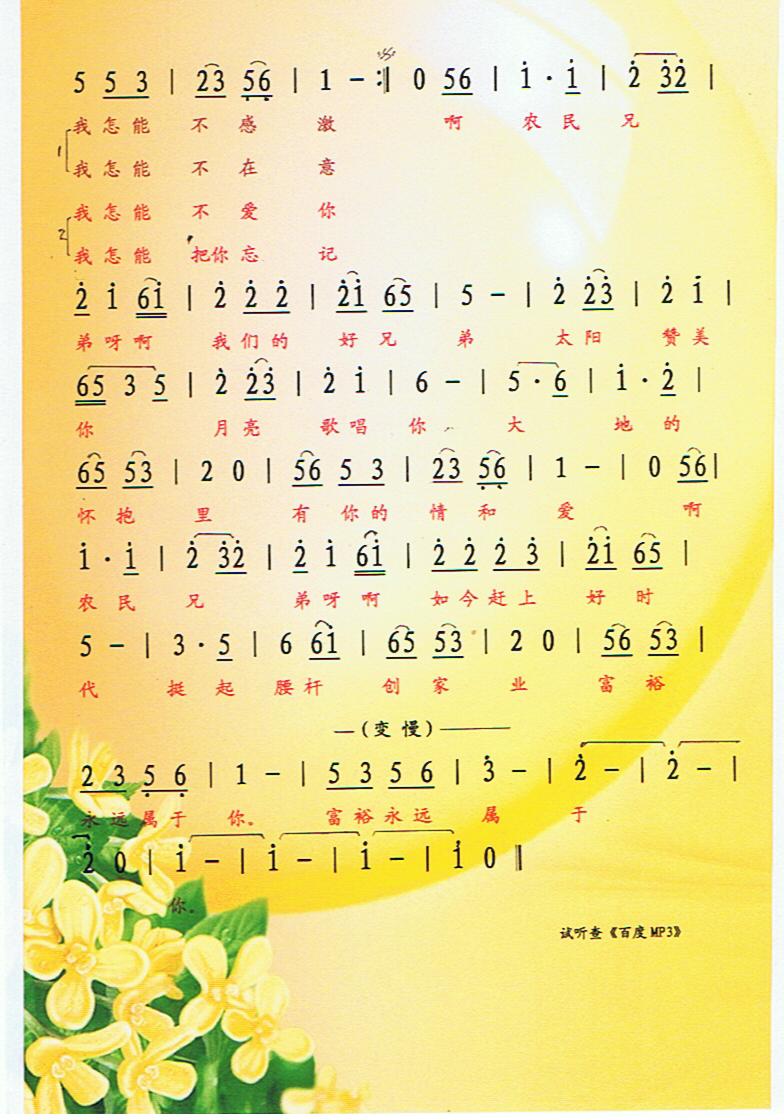 5 5 3 | 23 56 | 1 - :‖ 0 56 | i · i | 2 32 |
我怎能 不感激 啊 农民兄
1 我怎能 不在意
我怎能 不爱你
2 我怎能 把你忘记
2 i 6i | 2 2 2 | 2i 65 | 5 - | 2 23 | 2 i |
弟呀啊 我们的 好兄弟 太阳 赞美
65 3 5 | 2 23 | 2 i | 6 - | 5 · 6 | i · 2 |
你 月亮 歌唱 你 大 地的
65 53 | 2 0 | 56 5 3 | 23 56 | 1 - | 0 56 |
怀抱 里 有你的 情和 爱 啊
i · i | 2 32 | 2 i 6i | 2 2 2 3 | 2i 65 |
农民 兄 弟呀啊 如今赶上 好时
5 - | 3 · 5 | 6 6i | 65 53 | 2 0 | 56 53 |
代 挺起 腰杆 创家 业 富裕
—(变慢)———
2 3 5 6 | 1 - | 5 3 5 6 | 3 - | 2 - | 2 - |
永远属于 你。 富裕永远 属 于
2 0 | i - | i - | i - | i 0 ‖
你。
试听查《百度MP3》